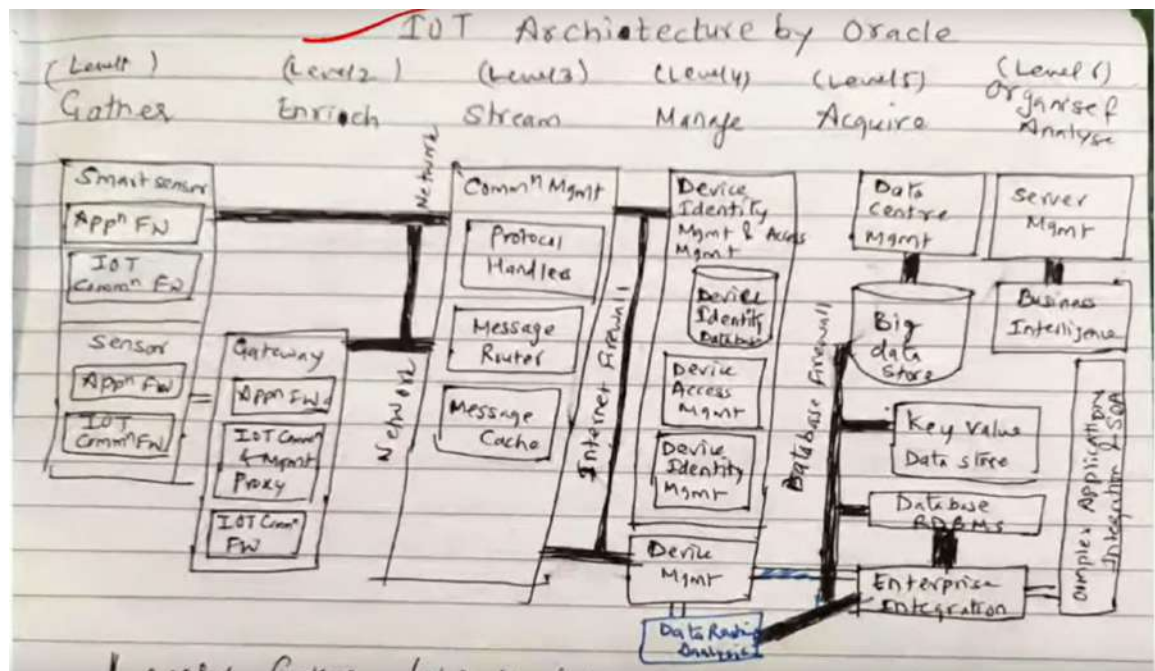 IOT Architecture by Oracle
(Level1) (Level2) (Level3) (Level4) (Level5) (Level 6)
Gather Enrich Stream Manage Acquire Organise & Analyse
Smart sensor
Appn FW
IOT
Commn FW
Sensor
Appn FW
IOT
Commn FW
Gateway
Appn FW
IOT Commn
& Mgmt
Proxy
IOT Commn
FW
Network
Network
Commn Mgmt
Protocal
Handlers
Message
Router
Message
Cache
Internet Firewall
Device
Identity
Mgmt & Access
Mgmt
Device
Identity
Database
Device
Access
Mgmt
Device
Identity
Mgmt
Device
Mgmt
Data Routing
Analysis
Database Firewall
Data
Centre
Mgmt
Big
data
Store
Key Value
Data store
Database
RDBMS
Enterprise
Integration
Server
Mgmt
Business
Intelligence
Application
Integration & SOA